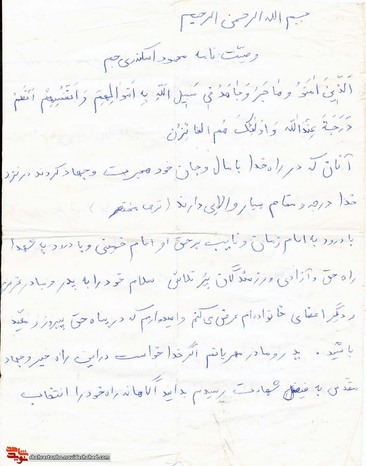 بسم الله الرحمن الرحیم
وصیت نامه محمود اسکندری جم
اَلَّذینَ اَمَنُو وهاجَرُ وَجاهَدُ فی سَبیلِ اللّه بِه اَموالِهِم وَ اَنفُسِهِم اَعظَمُ
دَرَجَةً عِندَاللّه وَ اوُلئِکَ هُمُ الفائِزُن
آنان که در راه خدا با مال و جان خود هجرت و جهاد کردند در نزد
خدا درجه و مقام بسیار والایی دارند (
با درود به امام زمان و نایب بر حق او امام خمینی و با درود به شهدا
راه حق و آزادی و رزمندگان پر تلاش سلام خود را به پدر و مادر عزیزم
و دیگر اعضای خانواده ام عرض می کنم و امیدوارم که در پناه حق پیروز و
باشید. پدر و مادر مهربانم اگر خدا خواست در این راه خیر و جهاد
مقدس به فیض شهادت رسیدم بدانید آگاهانه راه خود را انتخاب
نوید شاهد
shahrestanha.navideshahed.com